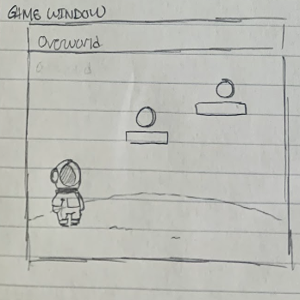 GAME WINDOW
Overworld